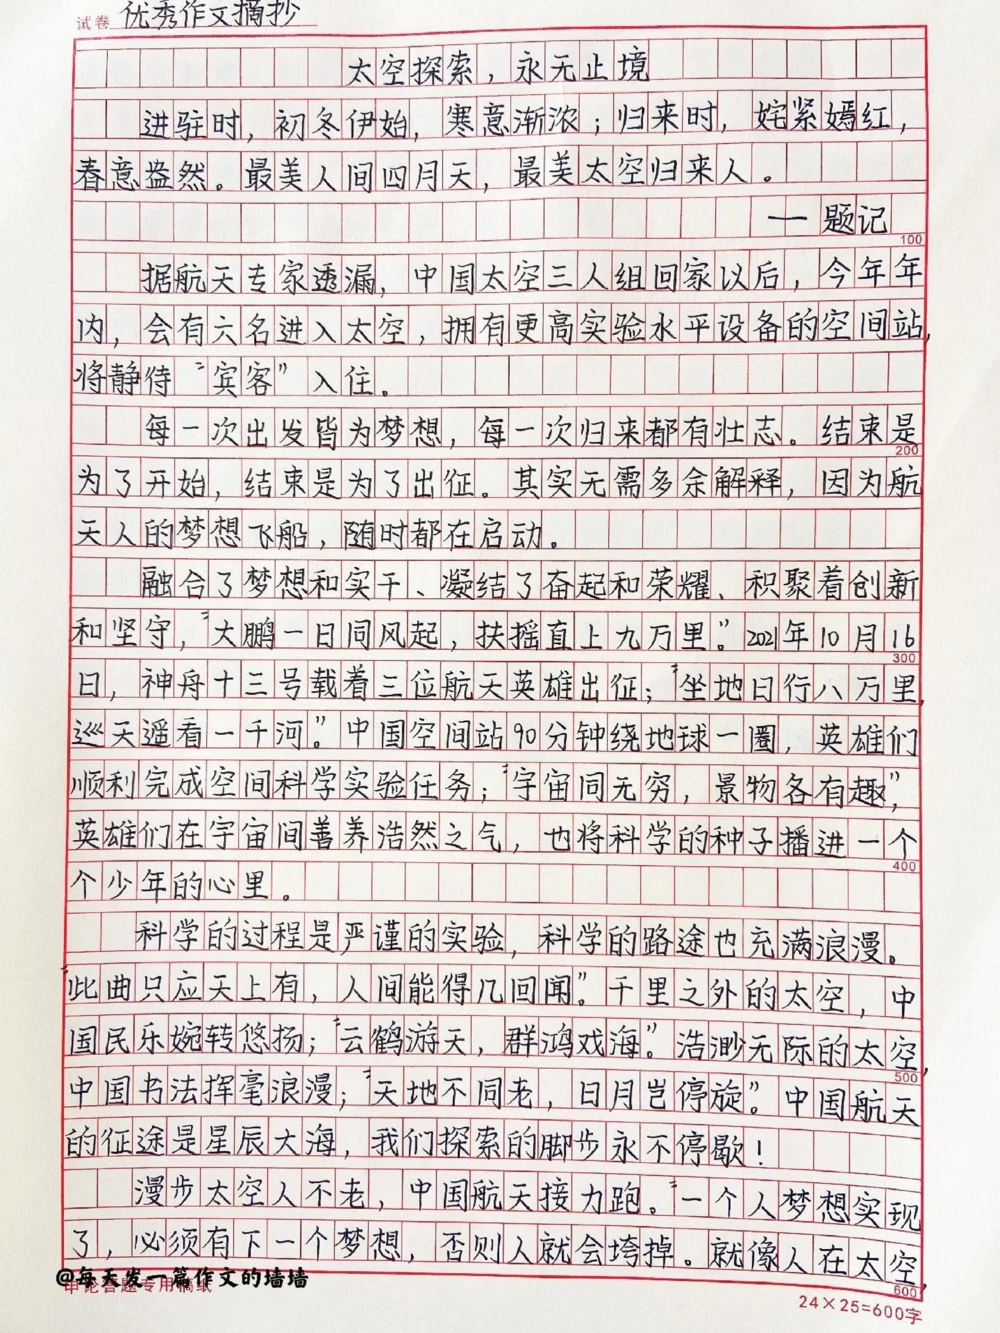 试卷 优秀作文摘抄
太空探索，永无止境
进驻时，初冬伊始，寒意渐浓；归来时，姹紧嫣红，
春意盎然。最美人间四月天，最美太空归来人。
一题记
100
据航天专家透漏，中国太空三人组回家以后，今年年
内，会有六名进入太空，拥有更高实验水平设备的空间站，
将静待“宾客”入住。
每一次出发皆为梦想，每一次归来都有壮志。结束是
200
为了开始，结束是为了出征。其实无需多余解释，因为航
天人的梦想飞船，随时都在启动。
融合了梦想和实干、凝结了奋起和荣耀、积聚着创新
和坚守，“大鹏一日同风起，扶摇直上九万里。”2021年10月16
300
日，神舟十三号载着三位航天英雄出征；“坐地日行八万里，
巡天遥看一千河。”中国空间站90分钟绕地球一圈，英雄们
顺利完成空间科学实验任务；“宇宙同无穷，景物各有趣”，
英雄们在宇宙间善养浩然之气，也将科学的种子播进一个
400
个少年的心里。
科学的过程是严谨的实验，科学的路途也充满浪漫。
“此曲只应天上有，人间能得几回闻”。千里之外的太空，中
国民乐婉转悠扬；“云鹤游天，群鸿戏海”。浩渺无际的太空，
500
中国书法挥毫浪漫；“天地不同老，日月岂停旋”。中国航天
的征途是星辰大海，我们探索的脚步永不停歇！
漫步太空人不老，中国航天接力跑。“一个人梦想实现
了，必须有下一个梦想，否则人就会垮掉。就像人在太空，
600
@每天发一篇作文的墙墙
申论答题专用稿纸
24×25=600字